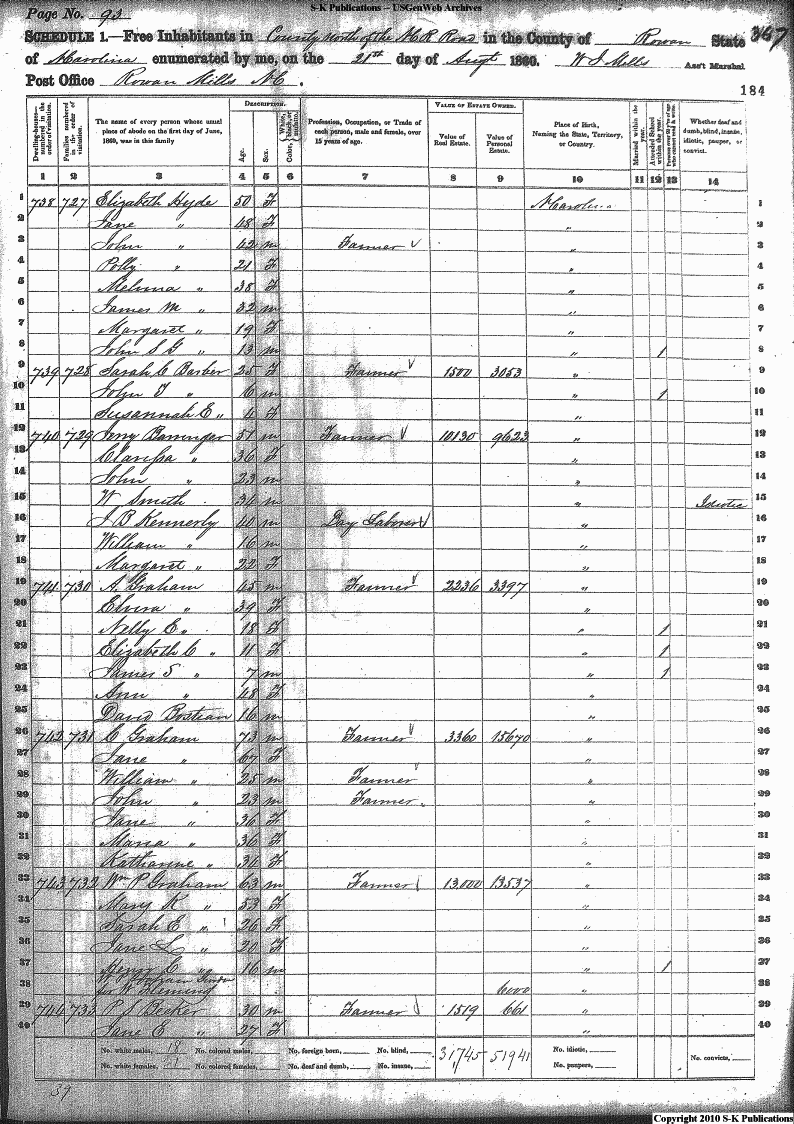 S-K Publications -- USGenWeb Archives
Page No. 93
SCHEDULE 1.—Free Inhabitants in County north of the N.C.R. Road in the County of Rowan State 367
of N Carolina enumerated by me, on the 21st day of Augt 1860. W J Mills Ass't Marshal
Post Office Rowan Mills N.C.
184
Dwelling-houses—numbered in the order of visitation.
Families numbered in the order of visitation.
The name of every person whose usual place of abode on the first day of June, 1860, was in this family
DESCRIPTION.
Age.
Sex.
Color, White, black, or mulatto.
Profession, Occupation, or Trade of each person, male and female, over 15 years of age.
VALUE OF ESTATE OWNED.
Value of Real Estate.
Value of Personal Estate.
Place of Birth, Naming the State, Territory, or Country.
Married within the year.
Attended School within the year.
Persons over 20 y'rs of age who cannot read & write.
Whether deaf and dumb, blind, insane, idiotic, pauper, or convict.
1 2 3 4 5 6 7 8 9 10 11 12 13 14
1 738 727 Elizabeth Hyde 50 F N Carolina 1
2 Jane " 48 F " 2
3 John " 42 m Farmer " 3
4 Polly " 21 F " 4
5 Melvina " 38 F " 5
6 James M " 32 m " 6
7 Margaret " 19 F " 7
8 John S G " 13 m " 1 8
9 739 728 Sarah C Barber 25 F Farmer 1500 3053 " 9
10 John T " 6 m " 1 10
11 Susannah E " 4 F " 11
12 740 729 Barringer 51 m Farmer 10130 9623 " 12
13 Clarissa " 36 F " 13
14 John " 23 m " 14
15 W Smith 34 m " Idiotic 15
16 J B Kennerly 40 m Day Laborer " 16
17 William " 16 m " 17
18 Margaret " 22 F " 18
19 741 730 A. Graham 45 m Farmer 2236 3397 " 19
20 Elvira " 39 F " 20
21 Nelly E " 18 F " 1 21
22 Elizabeth C " 11 F " 1 22
23 James S " 7 m " 1 23
24 Ann " 48 F " 24
25 David Bostian 16 m " 25
26 742 731 C Graham 73 m Farmer 3360 15670 " 26
27 Jane " 67 F " 27
28 William " 25 m Farmer " 28
29 John " 23 m Farmer " 29
30 Jane " 36 F " 30
31 Maria " 36 F " 31
32 Katharine " 34 F " 32
33 743 732 Wm P Graham 63 m Farmer 13,000 13537 " 33
34 Mary K " 53 F " 34
35 Sarah E " 26 F " 35
36 Jane L " 20 F " 36
37 Henry C " 16 m " 1 37
38 for Fleming 6000 " 38
39 744 733 P J Becker 30 m Farmer 1519 661 " 39
40 Jane E " 27 F " 40
No. white males, 18 No. colored males, No. foreign born, No. blind, 31,745 51941 No. idiotic, No. convicts,
No. white females, No. colored females, No. deaf and dumb, No. insane, No. paupers,
39
Copyright 2010 S-K Publications